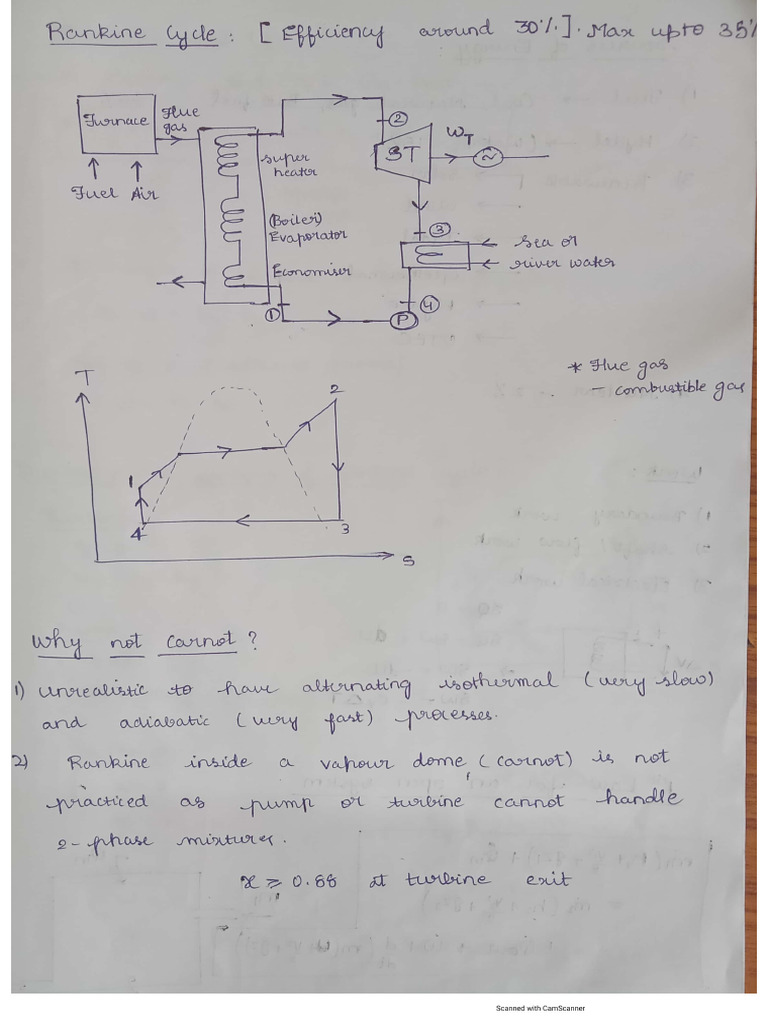 Rankine Cycle : [ Efficiency around 30%]. Max upto 35%
Furnace
Flue
gas
Fuel Air
super
heater
(Boiler)
Evaporator
Economiser
1
2
ST
WT
~
3
sea or
river water
4
P
* Flue gas
- combustible gas
T
2
1
4
3
S
Why not carnot ?
1) unrealistic to have alternating isothermal (very slow)
and adiabatic (very fast) processes.
2) Rankine inside a vapour dome (carnot) is not
practiced as pump or turbine cannot handle
2-phase mixtures.
x ⩾ 0.88 at turbine exit
Scanned with CamScanner